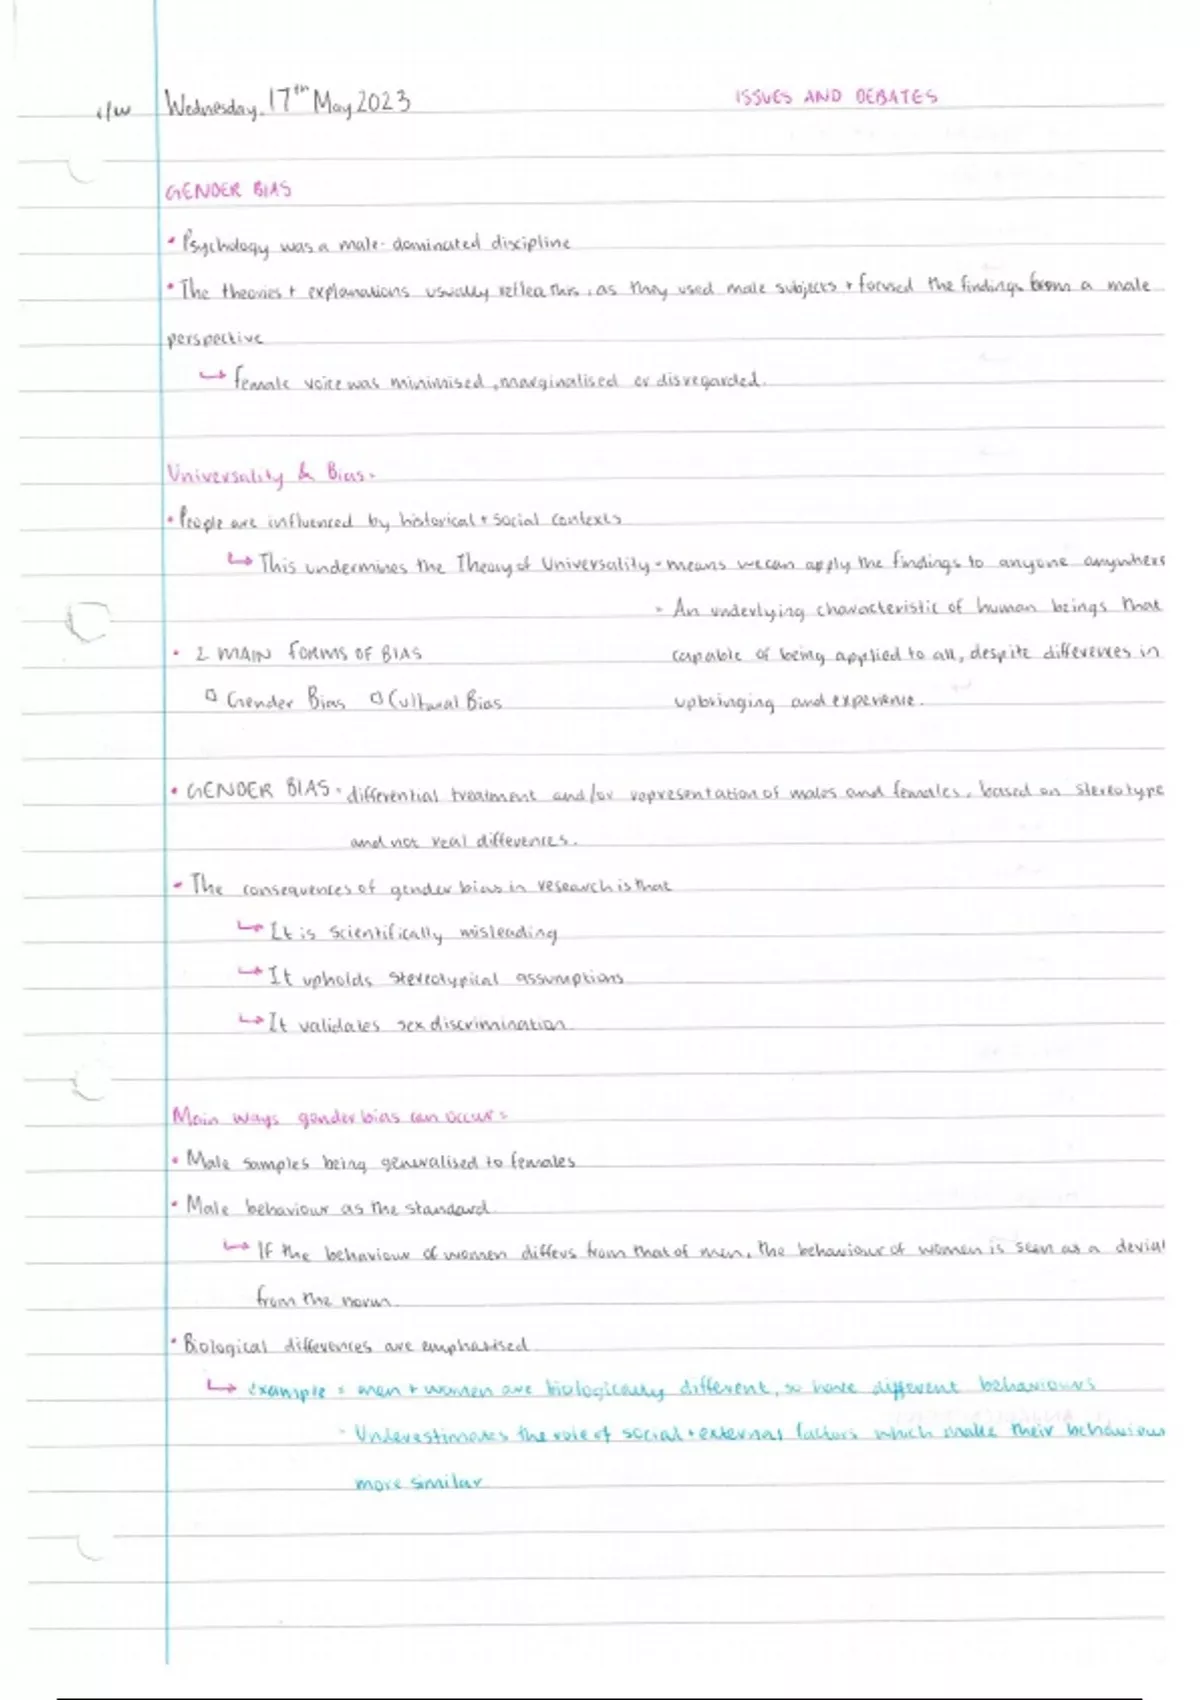 c/w Wednesday, 17th May 2023 ISSUES AND DEBATES
GENDER BIAS
• Psychology was a male-dominated discipline
• The theories + explanations usually reflect this, as they used male subjects + focused the findings from a male
perspective
↳ female voice was minimised, marginalised or disregarded.
Universality & Bias.
• People are influenced by historical + social contexts
↳ This undermines the Theory of Universality - means we can apply the findings to anyone anywhere
- An underlying characteristic of human beings that
• 2 MAIN FORMS OF BIAS capable of being applied to all, despite differences in
□ Gender Bias □ Cultural Bias upbringing and experience.
• GENDER BIAS - differential treatment and/or representation of males and females, based on stereotype
and not real differences.
• The consequences of gender bias in research is that
↳ It is scientifically misleading
↳ It upholds stereotypical assumptions
↳ It validates sex discrimination
Main ways gender bias can occur:
• Male samples being generalised to females
• Male behaviour as the standard
↳ If the behaviour of women differs from that of men, the behaviour of women is seen as a deviat
from the norm
• Biological differences are emphasised
↳ example = men + women are biologically different, so have different behaviours
- Underestimates the role of social + external factors which make their behaviour
more similar